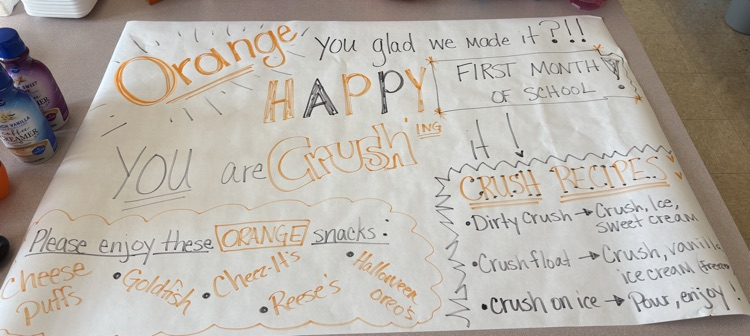 Orange you glad we made it?!!
HAPPY FIRST MONTH
OF SCHOOL!
YOU are Crush'ING it!
Please enjoy these ORANGE snacks:
Cheese Puffs
• Goldfish
• Cheez-It's
• Reese's
• Halloween Oreos
CRUSH RECIPES
• Dirty Crush → Crush, Ice,
sweet cream
• Crush float → Crush, vanilla
ice cream
• Crush on ice → Pour, enjoy!
SWEET
VANILLA
CREAMER